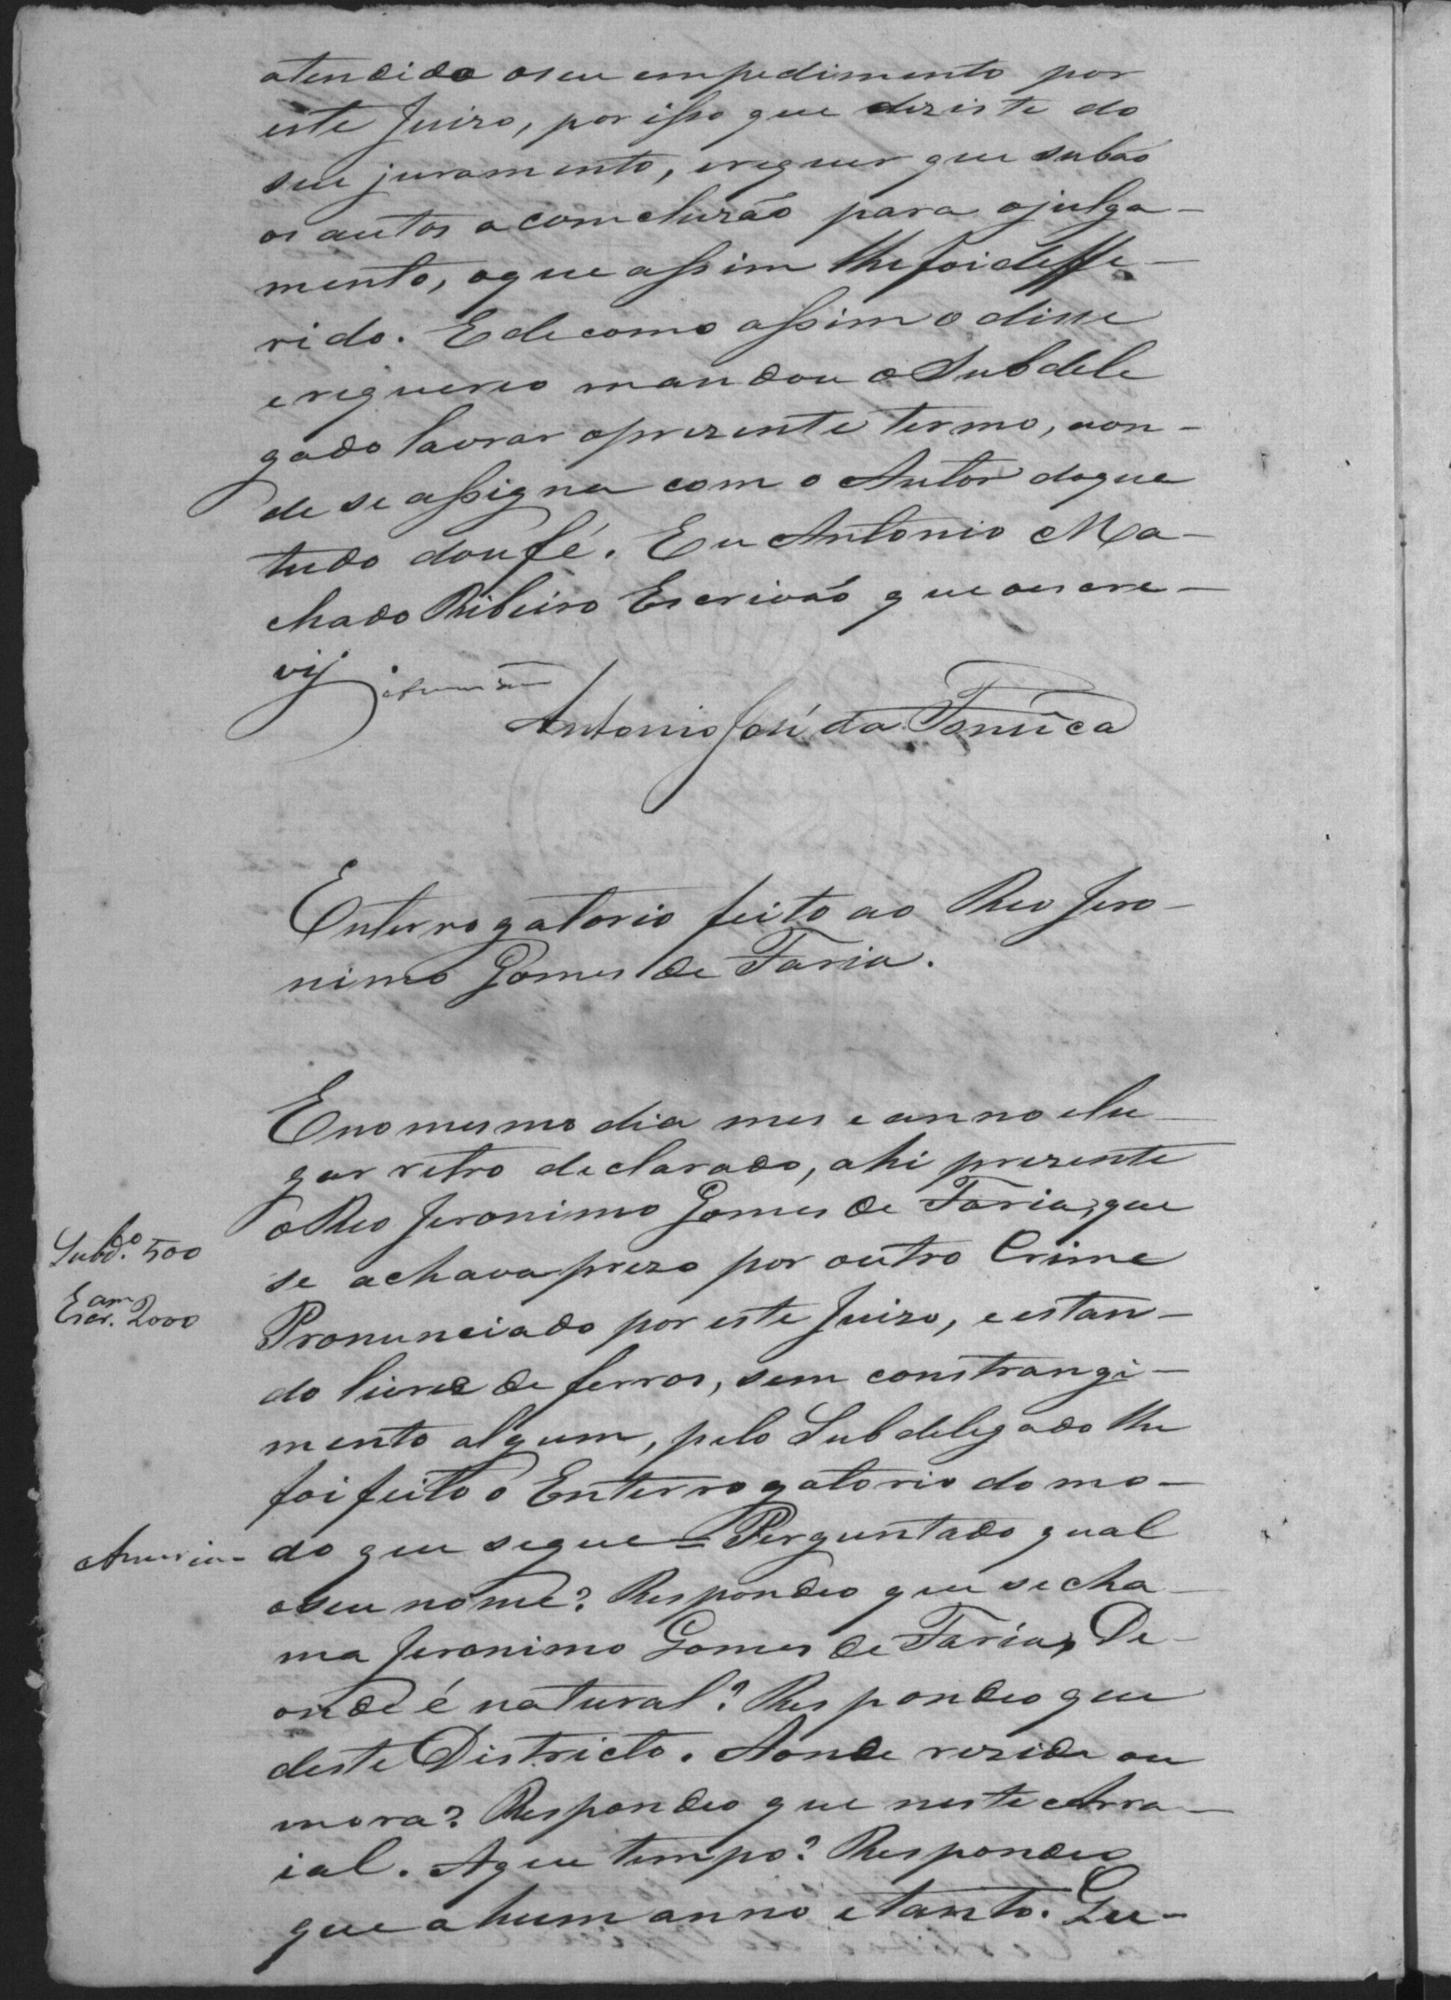 atendido oseu empedimento por
este Juizo, por isso que deziste do
seu juramento, erequer que subão
os autos a comcluzão para ojulga-
mento, oque assim lhefoideffe-
rido. Edecomo assim o disse
erequereo mandou o Subdele
gado lavrar oprezente termo, aon-
de se assigna com o Autor doque
tudo doufé. Eu Antonio Ma-
chado Ribeiro Escrivão que oescre-
vij
Antonio José da Fonseca
Enterrogatorio feito ao Reo Jero-
nimo Gomes de Faria.
Enomesmo dia mes e anno elu-
gar retro declarado, ahi prezente
o Reo Jeronimo Gomes de Faria, que
Subd.º 500
se achava prezo por outro Crime
Escr.am 2000
Pronunciado por este Juizo, e estan-
do livre de ferros, sem constrangi-
mento algum, pelo Subdelegado lhe
foi feito o Enterrogatorio do mo-
do que segue = Perguntado qual
oseu nome? Respondeo que secha-
ma Jeronimo Gomes de Faria, De-
onde é natural? Respondeo que
deste Districto. Aonde rezide ou
mora? Respondeo que neste Arra-
ial. Aque tempo? Respondeo
que a hum anno e tanto. Qu-